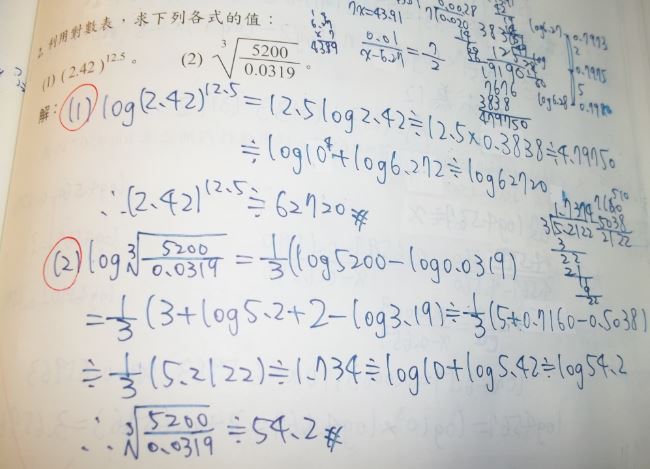 2. 利用對數表，求下列各式的值：
(1) (2.42)^12.5。 (2) ∛(5200/0.0319)。
解：(1) log(2.42)^12.5 = 12.5 log2.42 ≒ 12.5×0.3838 ≒ 4.79750
≒ log10^4 + log6.272 ≒ log62720
∴ (2.42)^12.5 ≒ 62720 #
(2) log∛(5200/0.0319) = 1/3 (log5200 − log0.0319)
= 1/3 (3 + log5.2 + 2 − log3.19) ≒ 1/3 (5 + 0.7160 − 0.5038)
≒ 1/3 (5.2122) ≒ 1.734 ≒ log10 + log5.42 ≒ log54.2
∴ ∛(5200/0.0319) ≒ 54.2 #
7x=43.91
0.01/(x−6.27) = 7/2
log6.27
0.7973
0.7975
log6.28
479750